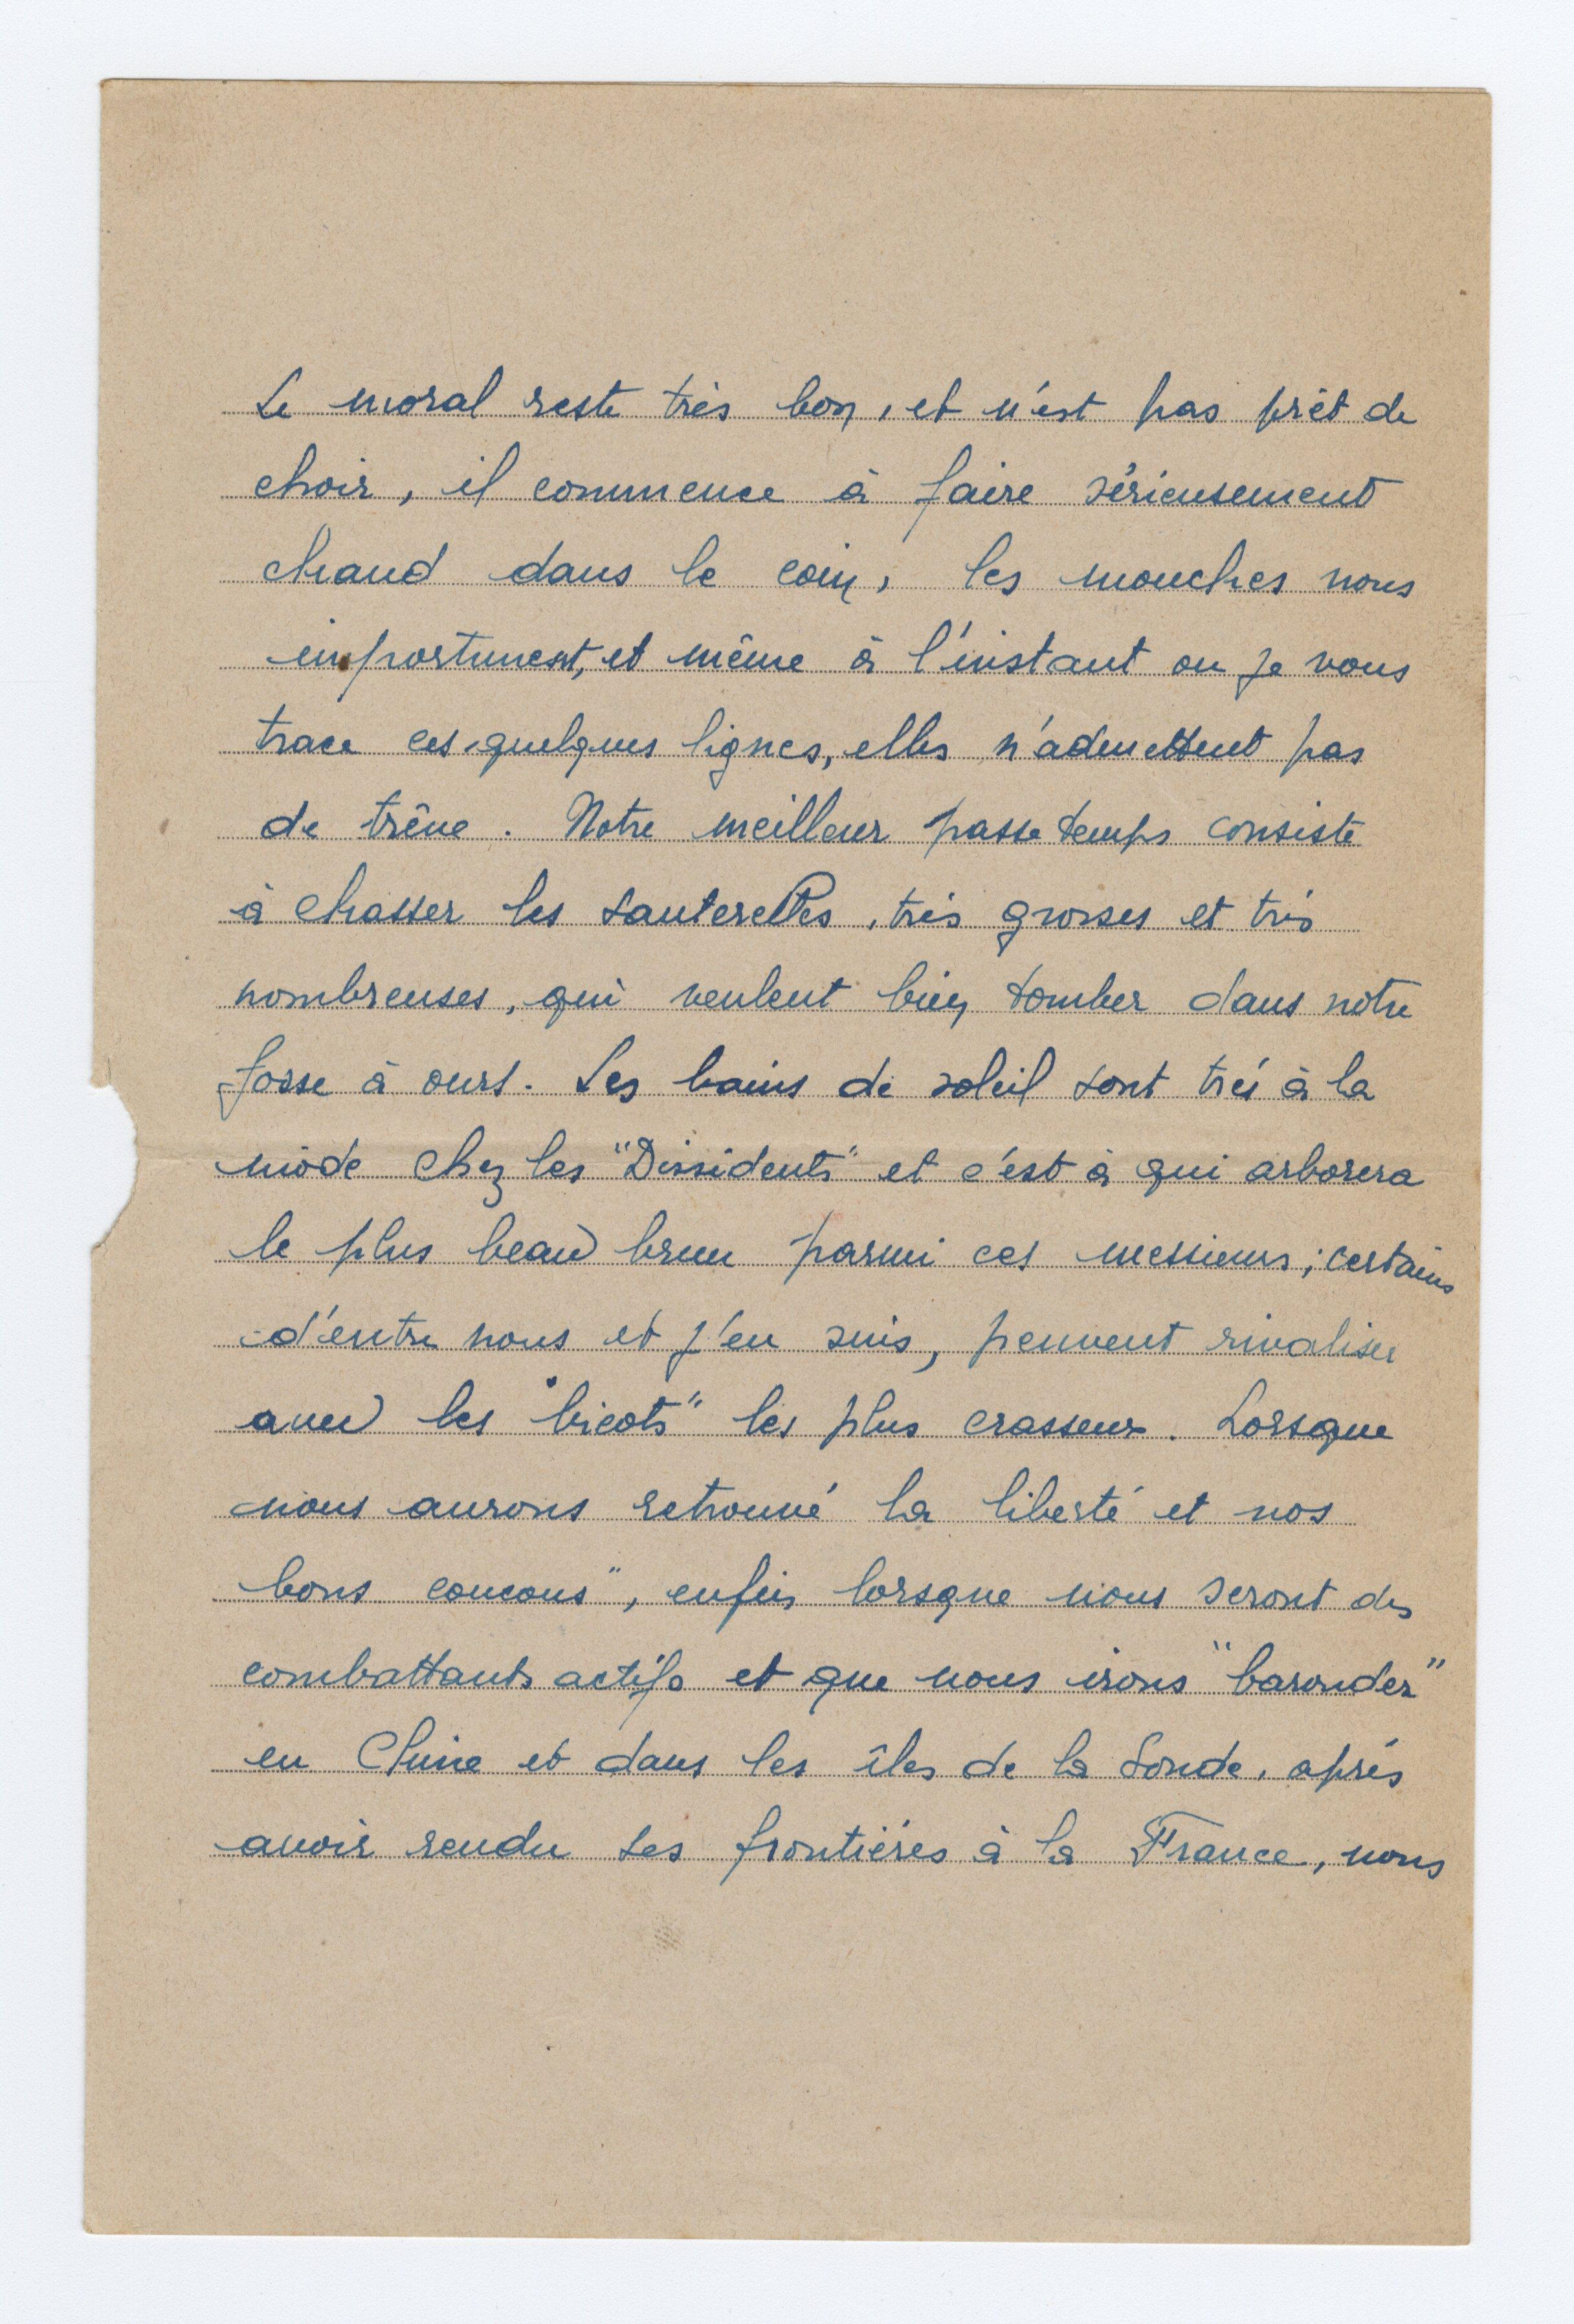 Le moral reste très bon, et n'est pas prêt de
choir, il commence à faire sérieusement
chaud dans le coin, les mouches nous
importunent, et même à l'instant ou je vous
trace ces quelques lignes, elles n'admettent pas
de trêve. Notre meilleur passe temps consiste
à chasser les sauterelles, très grosses et très
nombreuses, qui veulent bien tomber dans notre
fosse à ours. Les bains de soleil sont très à la
mode chez les "Dissidents" et c'est à qui arborera
le plus beau brun parmi ces messieurs; certains
d'entre nous et j'en suis, peuvent rivaliser
avec les "bicots" les plus crasseux. Lorsque
nous aurons retrouvé la liberté et nos
bons coucous", enfin lorsque nous seront des
combattants actifs et que nous irons "barouder"
en Chine et dans les îles de la Sonde, après
avoir rendu ses frontières à la France, nous